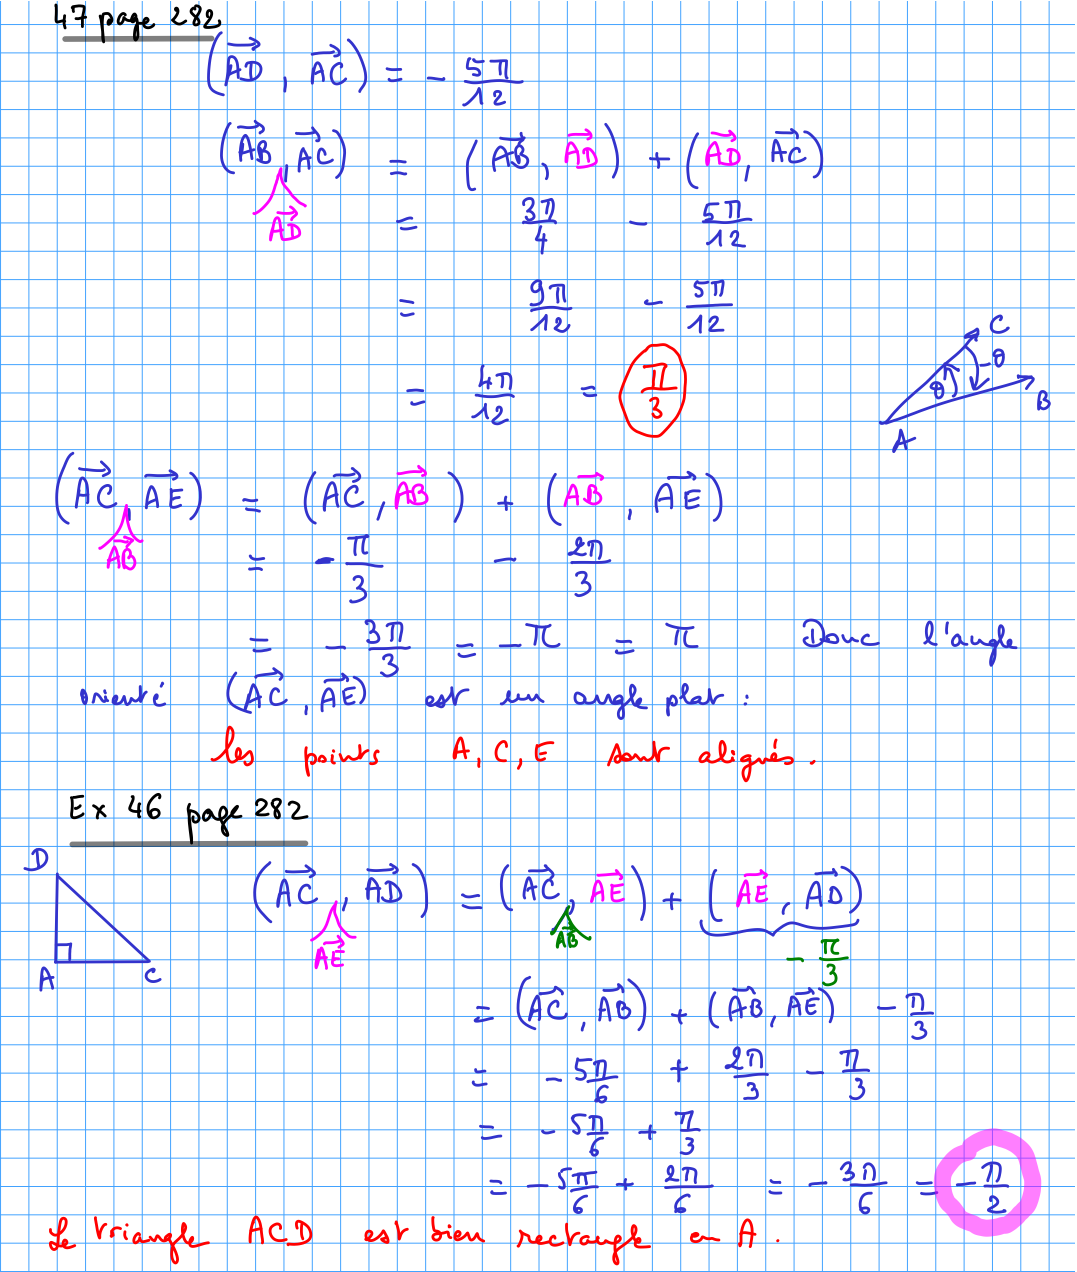 47 page 282
(AD→, AC→) = - 5π/12
(AB→, AC→) = (AB→, AD→) + (AD→, AC→)
AD→
= 3π/4 - 5π/12
= 9π/12 - 5π/12
= 4π/12 = π/3
C
θ -θ
B
A
(AC→, AE→) = (AC→, AB→) + (AB→, AE→)
AB→
= - π/3 - 2π/3
= - 3π/3 = -π = π Donc l'angle
orienté (AC→, AE→) est un angle plat :
les points A, C, E sont alignés.
Ex 46 page 282
D
A C
(AC→, AD→) = (AC→, AE→) + (AE→, AD→)
AE→ AB→ - π/3
= (AC→, AB→) + (AB→, AE→) - π/3
= - 5π/6 + 2π/3 - π/3
= - 5π/6 + π/3
= - 5π/6 + 2π/6 = - 3π/6 = - π/2
Le triangle ACD est bien rectangle en A.